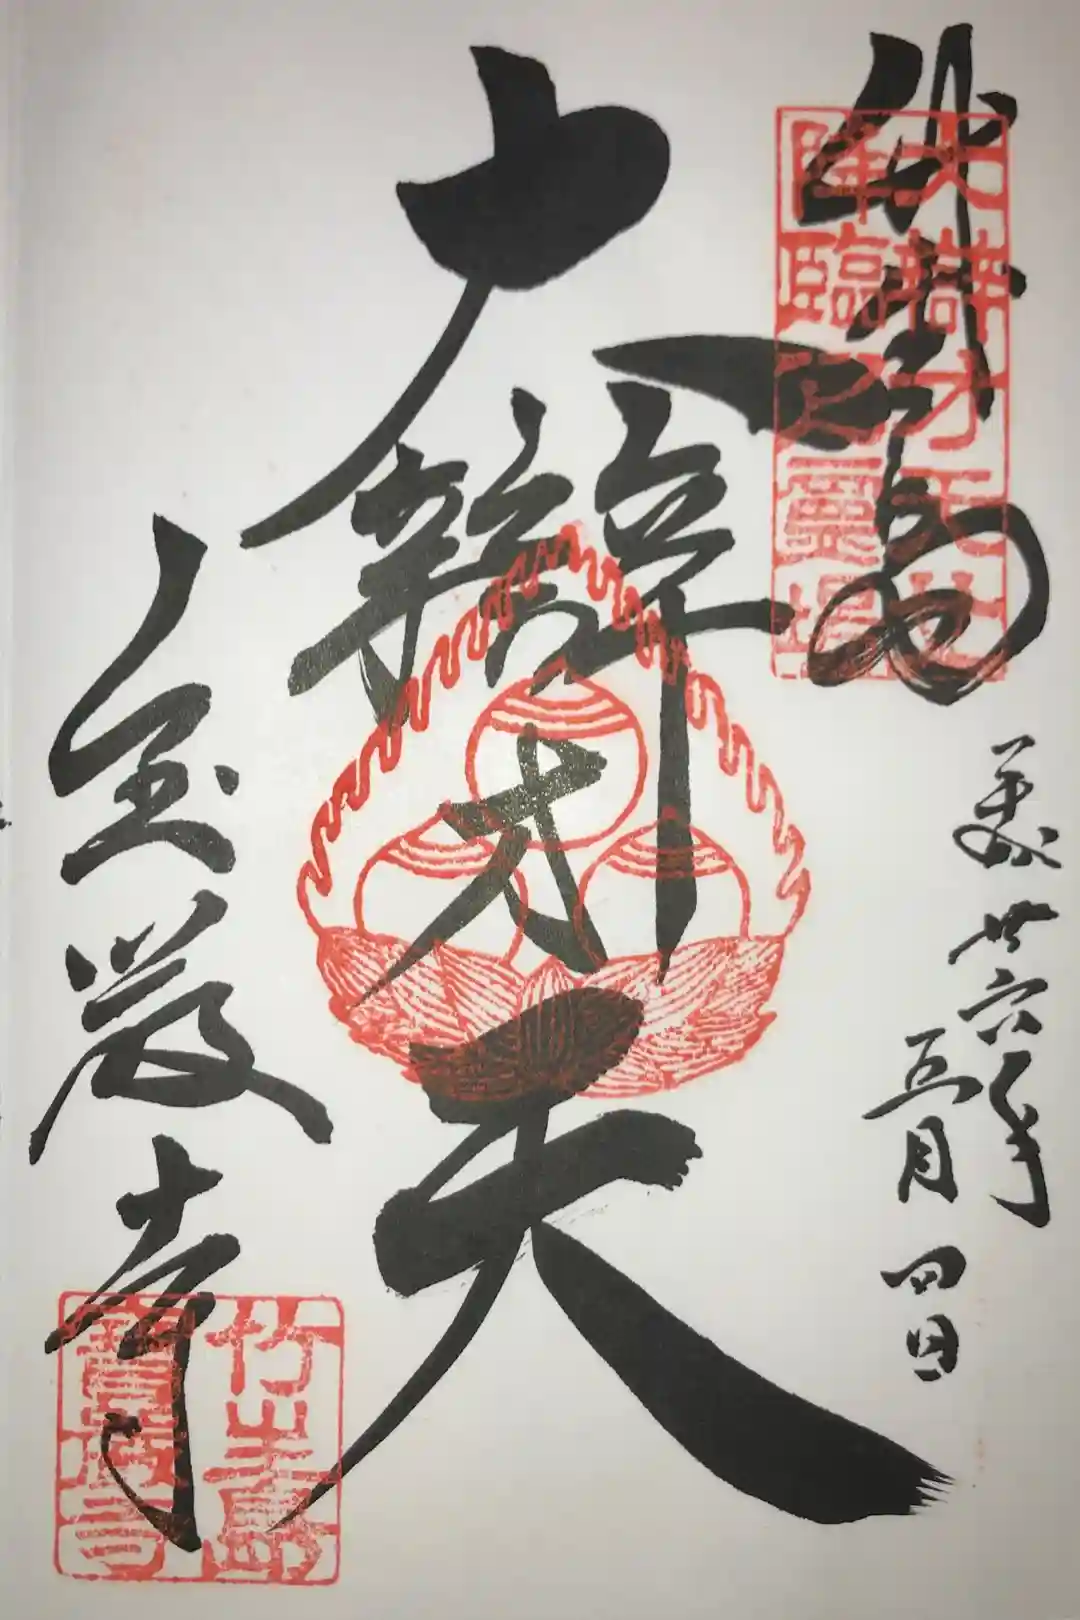 竹生島
平成廿六年
五月四日
大辯才天
宝厳寺
大辯才天女
降臨之靈場
竹生島
寶嚴寺